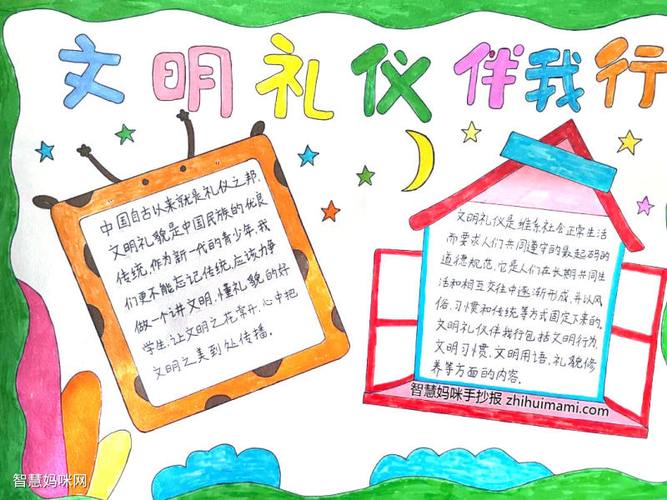 文明礼仪伴我行
中国自古以来就是礼仪之邦,
文明礼貌是中国民族的优良
传统,作为新一代的青少年,我
们更不能忘记传统,应该力争
做一个讲文明、懂礼貌的好
学生.让文明之花常开,心中把
文明之美到处传播.
文明礼仪是维系社会正常生活
而要求人们共同遵守的最起码的
道德规范,它是人们在长期共同生
活和相互交往中逐渐形成,并以风
俗、习惯和传统等方式固定下来的.
文明礼仪伴我行包括文明行为
文明习惯、文明用语、礼貌修
养等方面的内容.
智慧妈咪手抄报 zhihuimami.com
智慧妈咪网